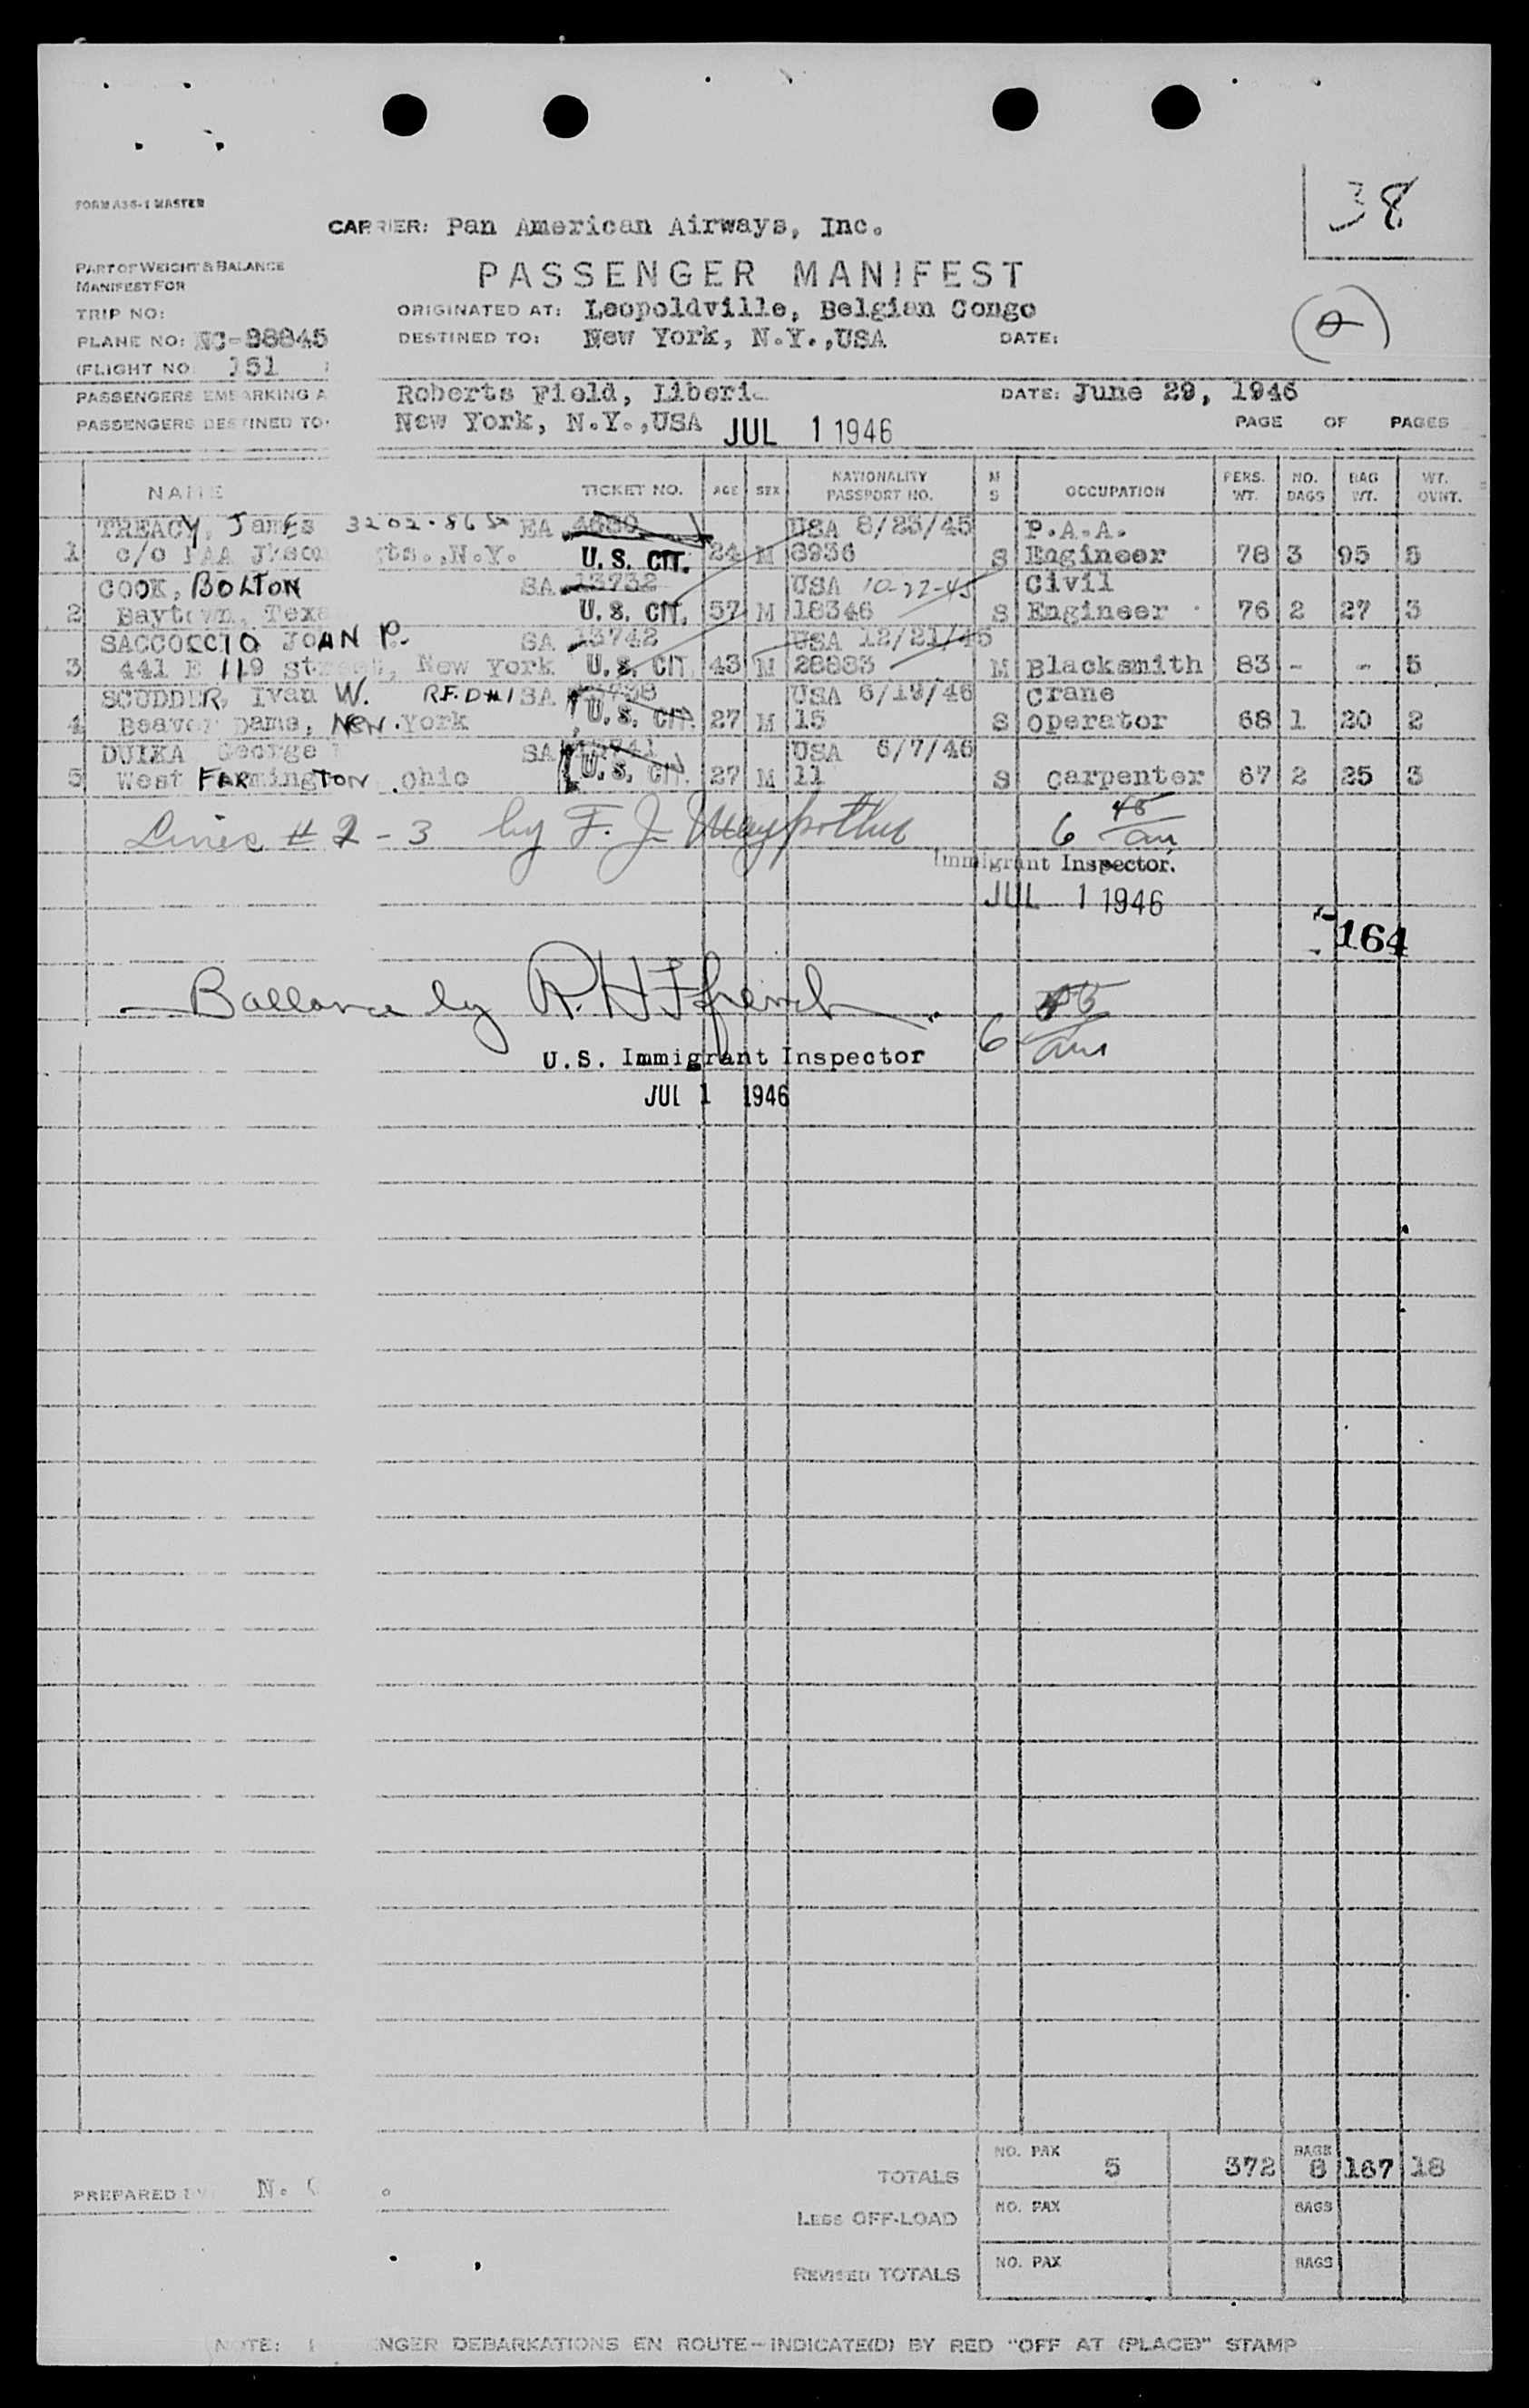 38
FORM A36-1 MASTER
CARRIER: Pan American Airways, Inc.
PART OF WEIGHT & BALANCE
MANIFEST FOR
PASSENGER MANIFEST
TRIP NO:
ORIGINATED AT: Leopoldville, Belgian Congo
PLANE NO: NC-88845
DESTINED TO: New York, N.Y.,USA DATE:
(FLIGHT NO 151
PASSENGERS EMBARKING A Roberts Field, Liberi DATE: June 29, 1946
PASSENGERS DESTINED TO New York, N.Y.,USA JUL 1 1946 PAGE OF PAGES
NAME TICKET NO. AGE SEX NATIONALITY PASSPORT NO. M S OCCUPATION PERS. WT. NO. BAGS BAG WT. WT. OVNT.
TREACY, James EA 4680 USA 8/23/45 P.A.A.
1 c/o PAA N.Y. U.S. CIT. 24 M 6936 S Engineer 78 3 95 5
COOK, BOLTON SA 13732 USA 10-22-45 Civil
2 Baytown, Texa U.S. CIT. 57 M 18346 S Engineer 76 2 27 3
SACCOCCIO JOAN P. SA 13742 USA 12/21/45
3 441 E 119 Street, New York U.S. CIT. 43 M 28883 M Blacksmith 83 - - 5
SCUDDER, Ivan W. SA USA 6/19/46 Crane
4 Beaver Dams, New York U.S. CIT. 27 M 15 S Operator 68 1 20 2
DULKA George SA USA 6/7/46
5 West FARmingTON Ohio U.S. CIT. 27 M 11 S Carpenter 67 2 25 3
Lines # 2 - 3 by F. J. 6 45/am
Immigrant Inspector.
JUL 1 1946
164
Ballance by R. H. Ffrench 6 45/am
U.S. Immigrant Inspector
JUL 1 1946
TOTALS NO. PAX 5 372 BAGS 8 167 18
PREPARED BY N.
LESS OFF-LOAD NO. PAX BAGS
REVISED TOTALS NO. PAX BAGS
NOTE: ENGER DEBARKATIONS EN ROUTE—INDICATE(D) BY RED "OFF AT (PLACE)" STAMP